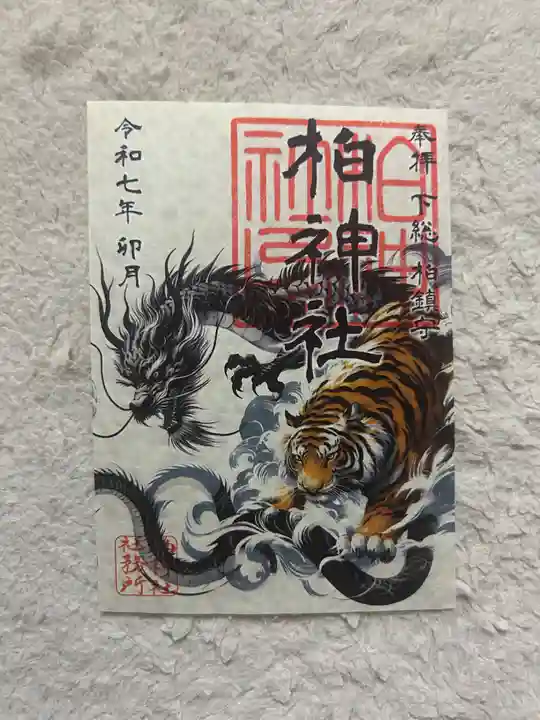 奉拝 下総柏鎮守
柏神社
令和七年 卯月
柏神社
社務所